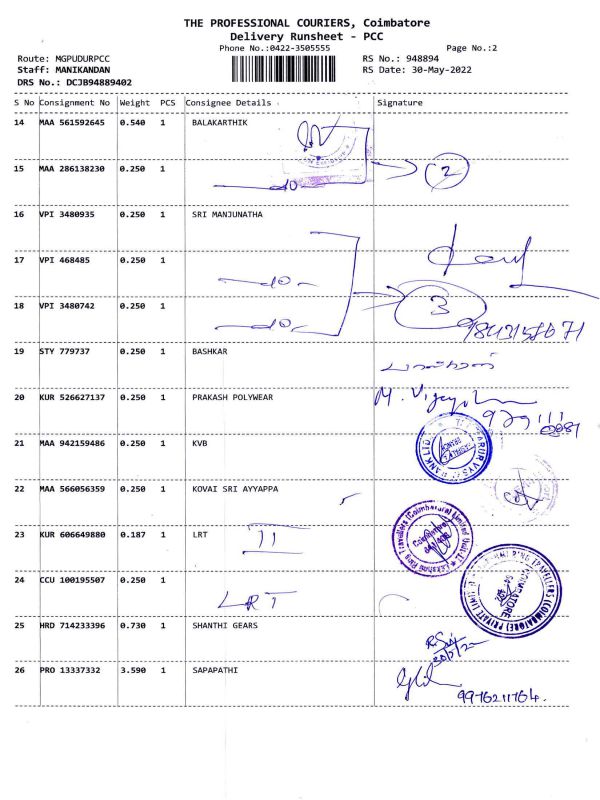 THE PROFESSIONAL COURIERS, Coimbatore
Delivery Runsheet - PCC
Phone No.:0422-3505555 Page No.:2
Route: MGPUDURPCC RS No.: 948894
Staff: MANIKANDAN RS Date: 30-May-2022
DRS No.: DCJB94889402
S No Consignment No Weight PCS Consignee Details Signature
14 MAA 561592645 0.540 1 BALAKARTHIK
15 MAA 286138230 0.250 1
do 2
16 VPI 3480935 0.250 1 SRI MANJUNATHA
17 VPI 468485 0.250 1
do
18 VPI 3480742 0.250 1 3
do
19 STY 779737 0.250 1 BASHKAR
20 KUR 526627137 0.250 1 PRAKASH POLYWEAR
21 MAA 942159486 0.250 1 KVB
22 MAA 566056359 0.250 1 KOVAI SRI AYYAPPA
23 KUR 606649880 0.187 1 LRT
24 CCU 100195507 0.250 1
LRT
25 HRD 714233396 0.730 1 SHANTHI GEARS
26 PRO 13337332 3.590 1 SAPAPATHI
9976211764.